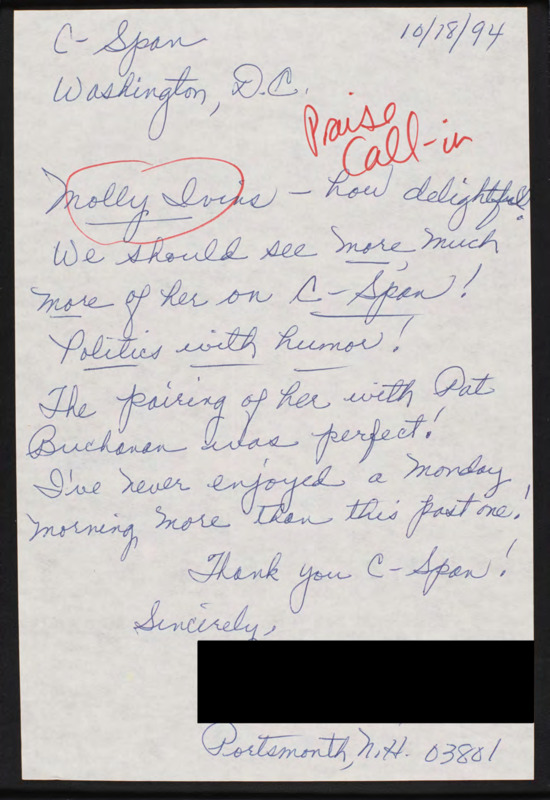 C-Span
10/18/94
Washington, D.C.
Praise
Call-in
Molly Ivins - how delightful!
We should see more, much
more of her on C-Span!
Politics with humor!
The pairing of her with Pat
Buchanan was perfect!
I've never enjoyed a Monday
morning more than this past one!
Thank you C-Span!
Sincerely,
Portsmonth, N.H. 03801